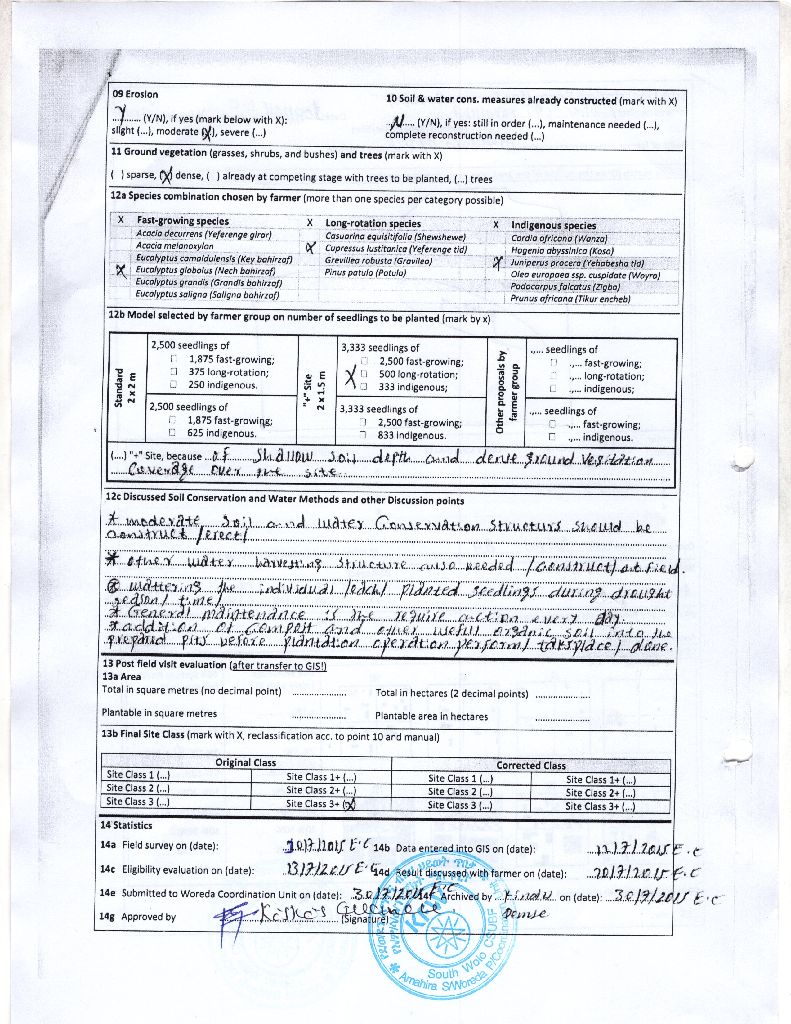 09 Erosion
Y (Y/N), if yes (mark below with X):
slight (...), moderate (X), severe (...)
10 Soil & water cons. measures already constructed (mark with X)
N (Y/N), if yes: still in order (...), maintenance needed (...),
complete reconstruction needed (...)
11 Ground vegetation (grasses, shrubs, and bushes) and trees (mark with X)
( ) sparse, (X) dense, ( ) already at competing stage with trees to be planted, (...) trees
12a Species combination chosen by farmer (more than one species per category possible)
X Fast-growing species
Acacia decurrens (Yeferenge girar)
Acacia melanoxylon
Eucalyptus camaldulensis (Key bahirzaf)
X Eucalyptus globolus (Nech bahirzof)
Eucalyptus grandis (Grandis bahirzof)
Eucalyptus saligna (Saligna bahirzof)
X Long-rotation species
Casuarina equisitifolia (Shewshewe)
X Cupressus lustitanica (Yeferenge tid)
Grevillea robusta (Gravilea)
Pinus patula (Patula)
X Indigenous species
Cordia africana (Wanza)
Hagenia abyssinica (Koso)
X Juniperus procera (Yehabesha tid)
Olea europaea ssp. cuspidate (Woyra)
Podocarpus falcatus (Zigba)
Prunus africana (Tikur encheb)
12b Model selected by farmer group on number of seedlings to be planted (mark by x)
Standard
2 x 2 m
2,500 seedlings of
1,875 fast-growing;
375 long-rotation;
250 indigenous.
2,500 seedlings of
1,875 fast-growing;
625 indigenous.
"+" Site
2 x 1.5 m
3,333 seedlings of
2,500 fast-growing;
X 500 long-rotation;
333 indigenous;
3,333 seedlings of
2,500 fast-growing;
833 indigenous.
Other proposals by
farmer group
.,... seedlings of
.,... fast-growing;
.,... long-rotation;
.,... indigenous;
.,... seedlings of
.,... fast-growing;
.,... indigenous.
(....) "+" Site, because of shallow soil depth and dense ground vegitation
coverage over the site
12c Discussed Soil Conservation and Water Methods and other Discussion points
* moderate soil and water conservation structurs should be
construct /erect/
* other water harvesting structure also needed /construct/ at field.
* wattering the individual /each/ planted seedlings during drought
season/ time/
* General maintenance is the require action every day
* addition of compost and other usefull organic soil into the
prepaid pits before plantation operation perform/ takeplace/ done.
13 Post field visit evaluation (after transfer to GIS!)
13a Area
Total in square metres (no decimal point) .................. Total in hectares (2 decimal points) ..................
Plantable in square metres .................. Plantable area in hectares ..................
13b Final Site Class (mark with X, reclassification acc. to point 10 and manual)
Original Class Corrected Class
Site Class 1 (...) Site Class 1+ (...) Site Class 1 (...) Site Class 1+ (...)
Site Class 2 (...) Site Class 2+ (...) Site Class 2 (...) Site Class 2+ (...)
Site Class 3 (...) Site Class 3+ (X) Site Class 3 (...) Site Class 3+ (...)
14 Statistics
14a Field survey on (date): 10/7/2015 E.C 14b Data entered into GIS on (date): 12/7/2015 E.C
14c Eligibility evaluation on (date): 13/7/2015 E.C 14d Result discussed with farmer on (date): 20/7/2015 E.C
14e Submitted to Woreda Coordination Unit on (date): 30/7/2015 E.C 14f Archived by on (date): 30/7/2015 E.C
14g Approved by
(Signature)
South Wolo CSUBF
Amahira S/Woreda P/Coordination